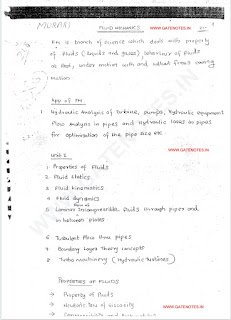 WWW.GATENOTES.IN
MURARI
FLUID MECHANICS
FM is branch of science which deals with property
of fluids (liquids and gases) behaviour of fluids
at rest, under motion with and without forces causing
motion
App of FM
1 Hydraulic Analysis of Turbine, pumps, Hydraulic equipment
flow analysis in pipes and hydraulic losses in pipes
for optimisation of the pipe size etc
Unit's
1. Properties of Fluids
2. Fluid Statics
3. Fluid Kinematics
4. Fluid Dynamics
5. Laminar Incompressible fluids through pipes and
in between plates
6 Turbulent flow thro pipes
7 Boundary layer theory concepts
8 Turbo machinery (Hydraulic turbines)
PROPERTIES OF FLUIDS
→ Property of fluids
→ Newtons law of viscosity
WWW.GATENOTES.IN